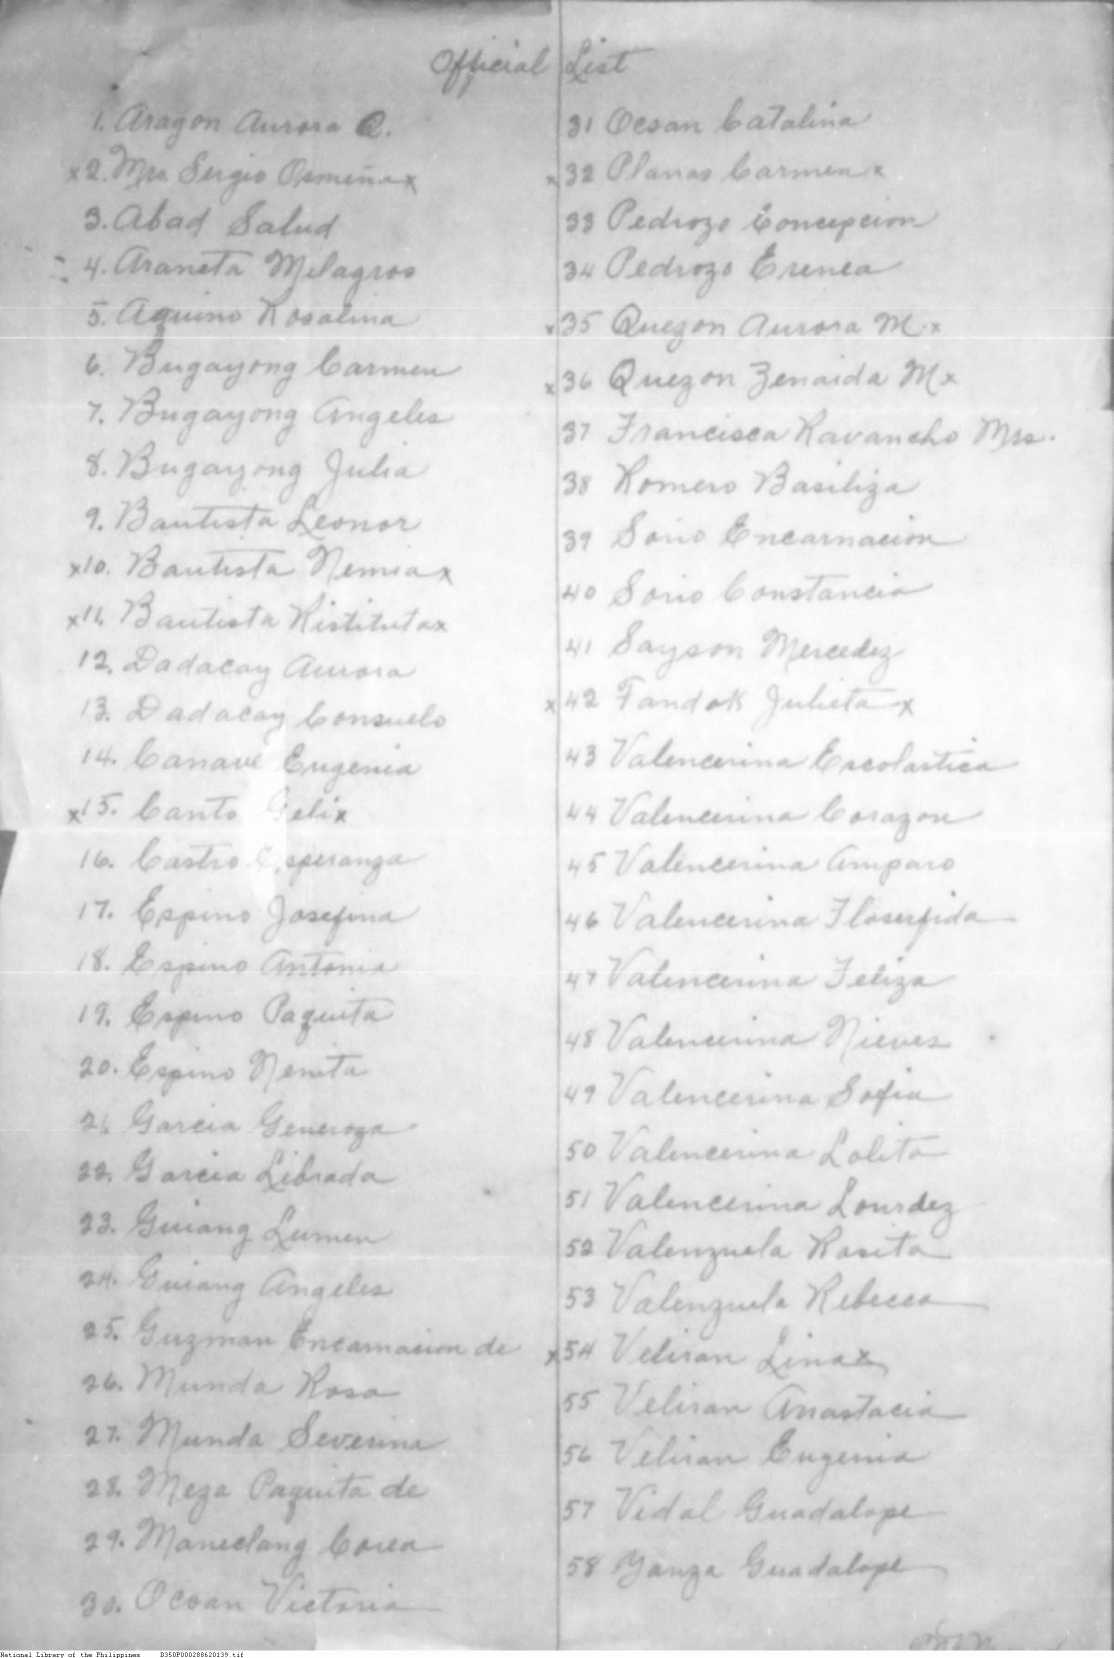 Official List
1. Aragon Aurora Q.
x2. Mrs Sergio Osmeña x
3. Abad Salud
4. Araneta Milagros
5. Aquino Rosalina
6. Bugayong Carmen
7. Bugayong Angeles
8. Bugayong Julia
9. Bautista Leonor
x10. Bautista Nemia x
x11. Bautista Ristituta x
12. Dadacay Aurora
13. Dadacay Consuelo
14. Canave Eugenia
x15. Canto Feli x
16. Castro Esperanza
17. Espino Josefina
18. Espino Antonia
19. Espino Paquita
20. Espino Nenita
21. Garcia Generoza
22. Garcia Librada
23. Guiang Lumen
24. Guiang Angeles
25. Guzman Encarnacion de
26. Munda Rosa
27. Munda Severina
28. Meza Paquita de
29. Maneclang Corea
30. Ocsan Victoria
31 Ocsan Catalina
x32 Planas Carmen x
33 Pedrozo Concepcion
34 Pedrozo Erenea
x35 Quezon Aurora M. x
x36 Quezon Zenaida M x
37 Francisca Ravancho Mrs.
38 Romero Basiliza
39 Sorio Encarnacion
40 Sorio Constancia
41 Sayson Mercedez
x42 Tandok Julieta x
43 Valencerina Escolastica
44 Valencerina Corazon
45 Valencerina Amparo
46 Valencerina Floserfida
47 Valencerina Feliza
48 Valencerina Nieves
49 Valencerina Sofia
50 Valencerina Lolita
51 Valencerina Lourdez
52 Valenzuela Rosita
53 Valenzuela Rebecca
x54 Veliran Lina x
55 Veliran Anastacia
56 Veliran Eugenia
57 Vidal Guadalope
58 Yanza Guadalope
National Library of the Philippines B350P000288620139.tif